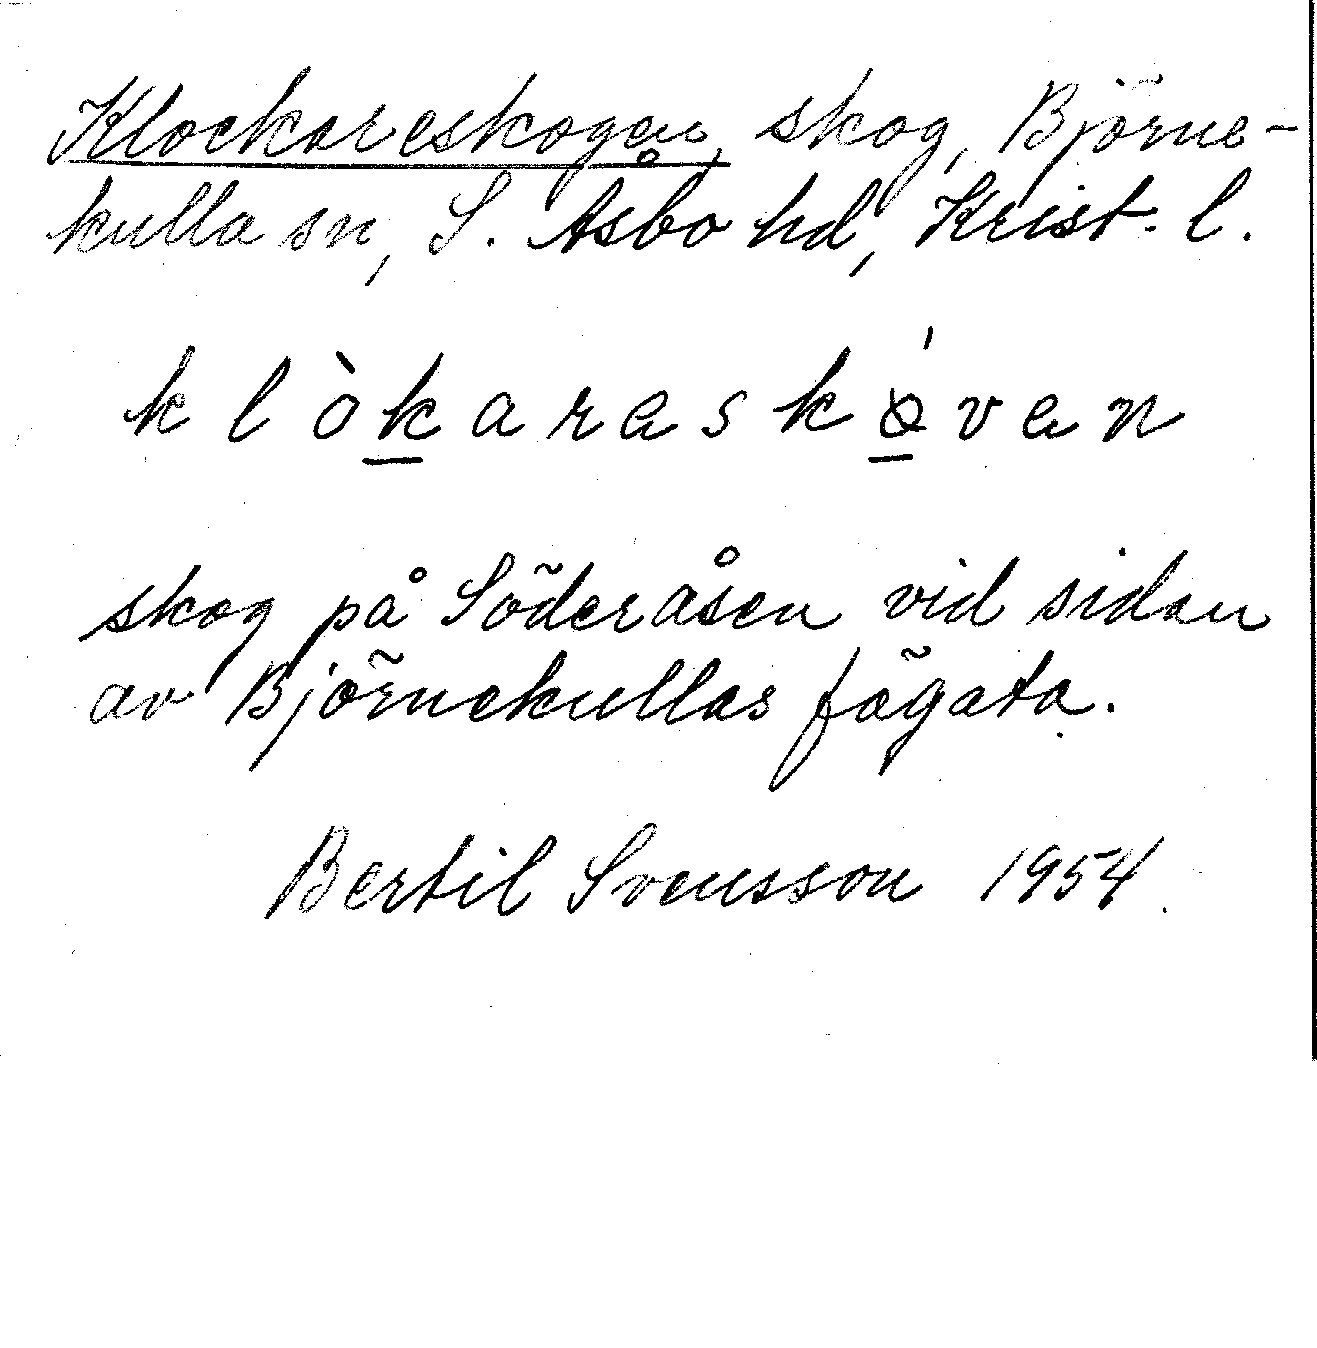 Klockareskogen, skog, Björne-
kulla sn, S. Åsbo hd, Krist. l.
klòkaraskǿven
skog på Söderåsen vid sidan
av Björnekullas fägata.
Bertil Svensson 1954.